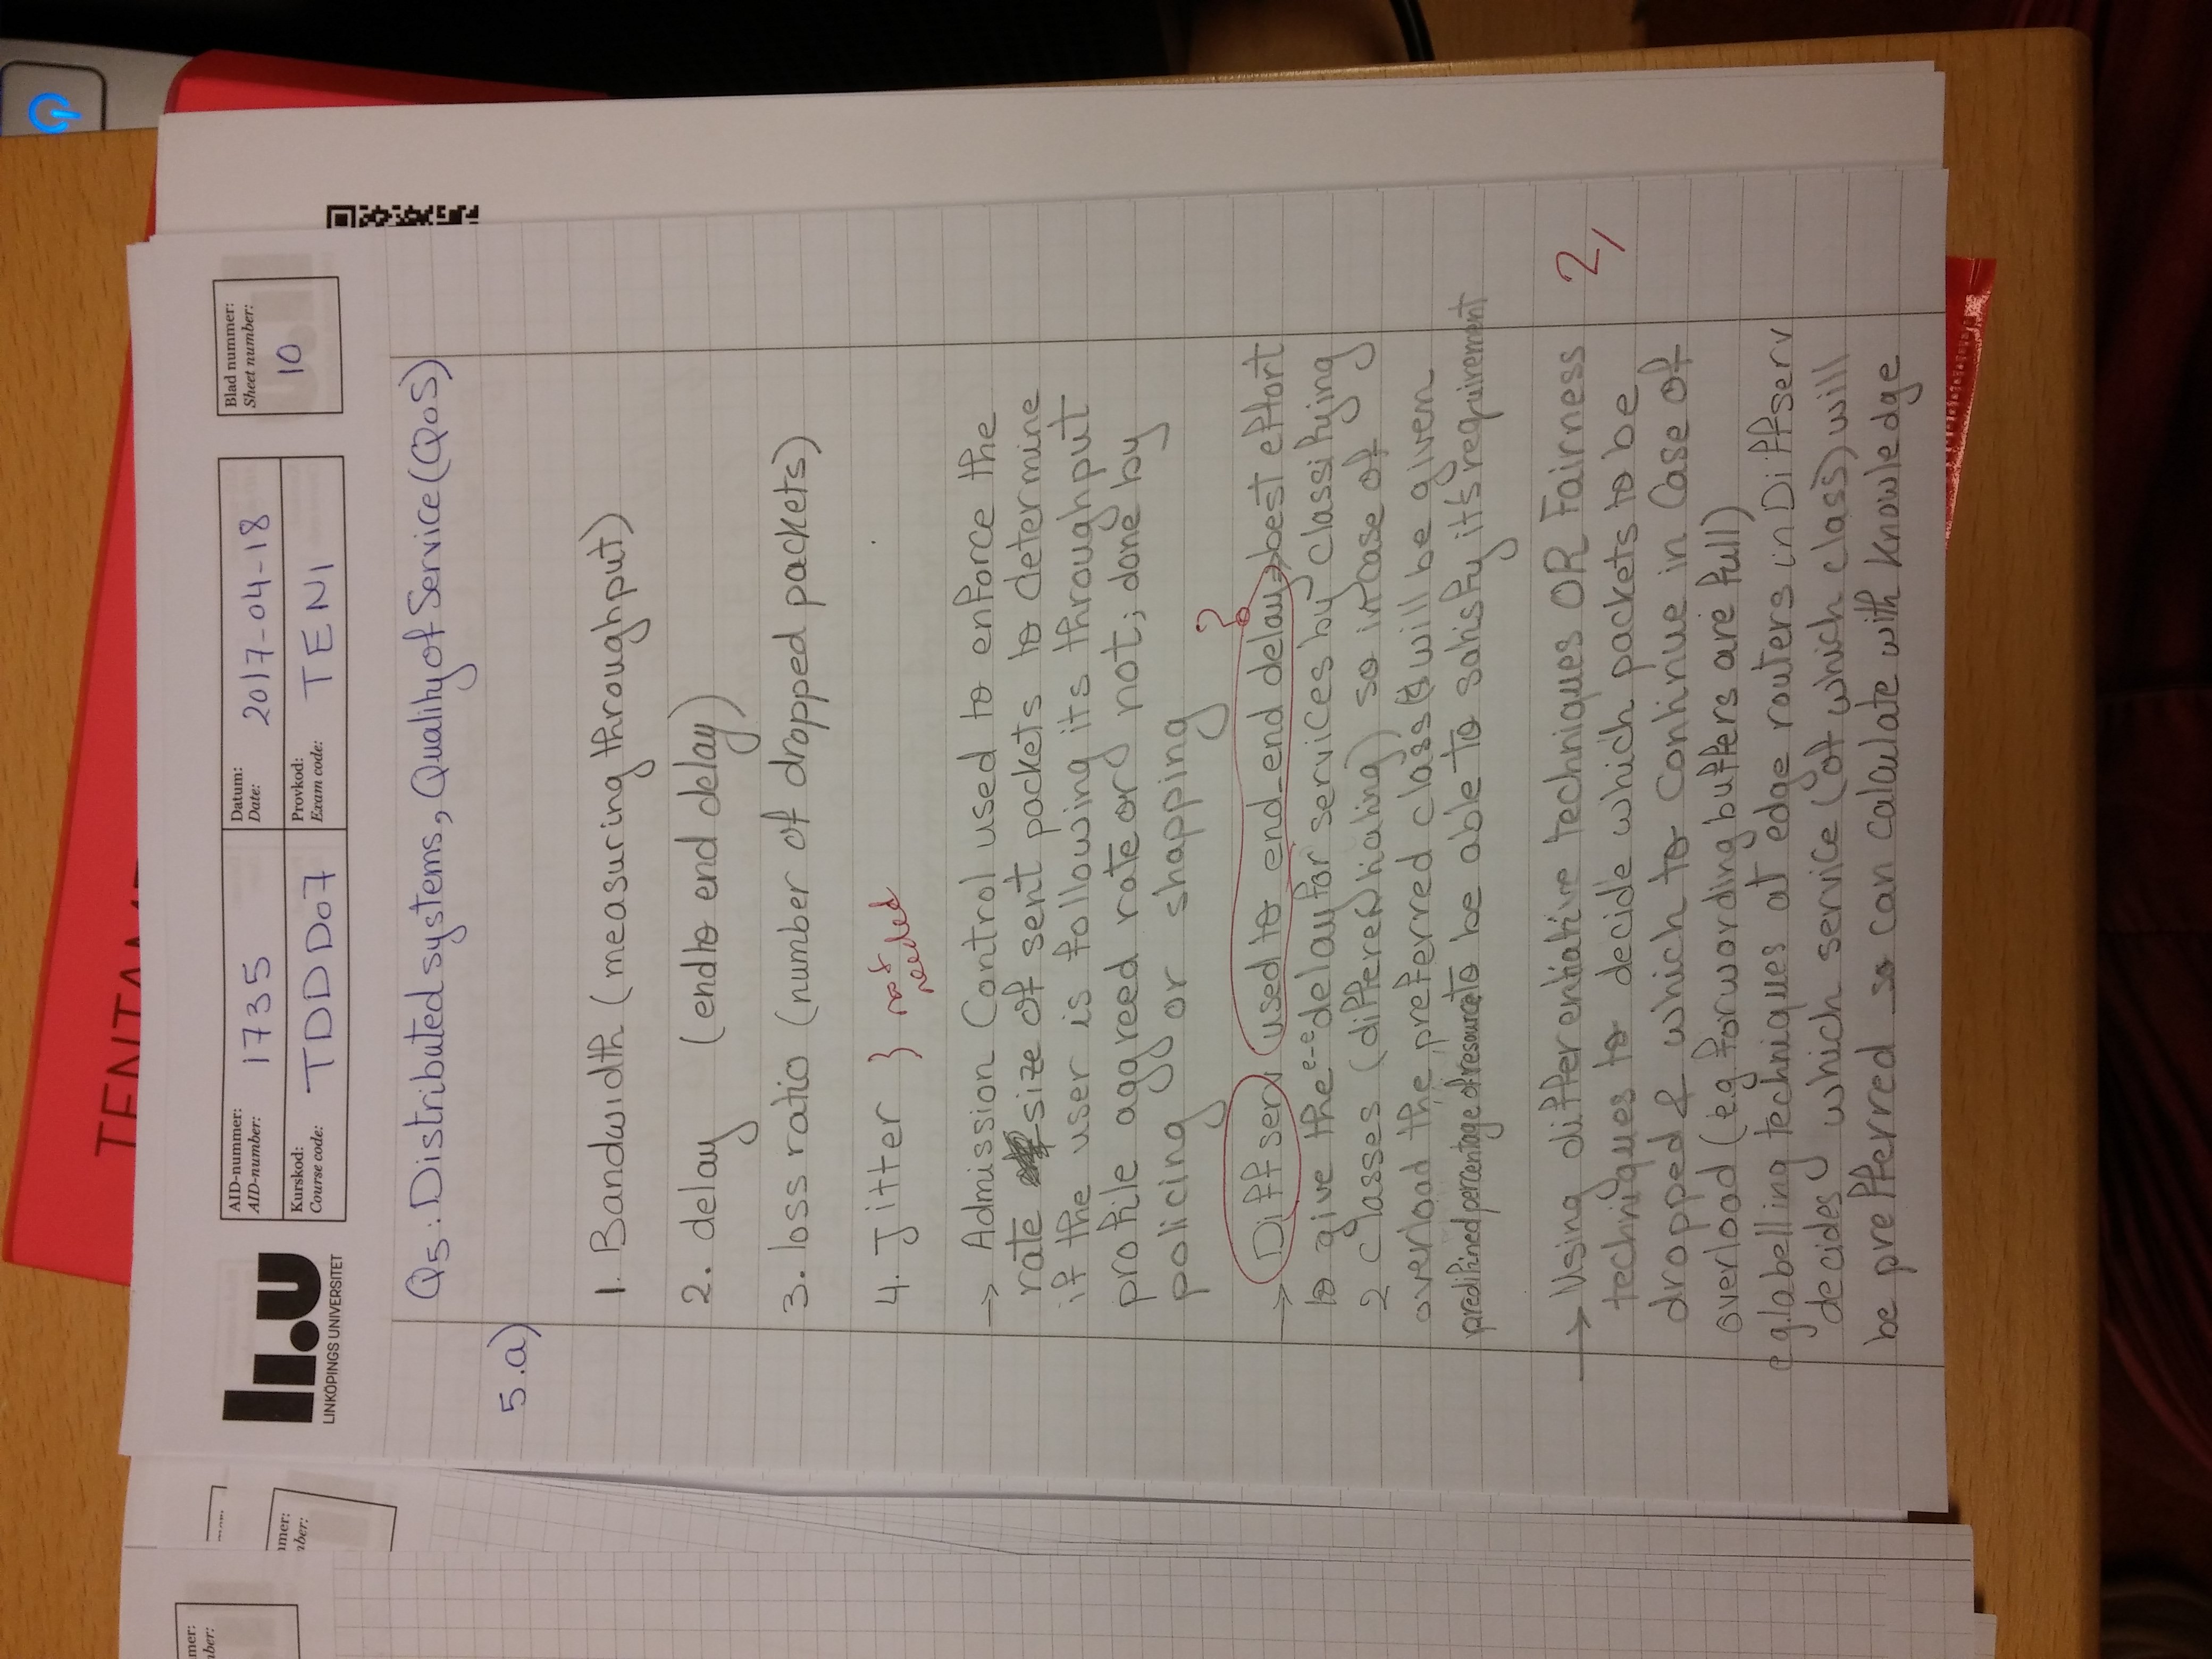 TENTAM
LIU
LINKÖPINGS UNIVERSITET
AID-nummer:
AID-number: 1735
Datum:
Date: 2017-04-18
Blad nummer:
Sheet number:
10
Kurskod:
Course code: TDDD07
Provkod:
Exam code: TEN1
Q5: Distributed systems, Quality of Service (QoS)
5.a)
1. Bandwidth (measuring throughput)
2. delay (end to end delay)
3. loss ratio (number of dropped packets)
4. Jitter } not needed
→ Admission Control used to enforce the
rate size of sent packets to determine
if the user is following its throughput
profile agreed rate or not; done by
policing or shapping
?
→ Diffserv used to end_end delay → best effort
to give the e-e delay for services by classifying
2 classes (differenhiating) so in case of
overload the preferred class(s) will be given
predifined percentage of resource to be able to satisfy it's requirement
2,
→ Using differentiative techniques OR Fairness
techniques to decide which packets to be
dropped & which to continue in Case of
overload (e.g forwording buffers are full)
e.g. labelling techniques at edge routers in Diffserv
decides which service (of which class) will
be prefferred so can calculate with knowledge
mer:
nber:
mer:
ber: